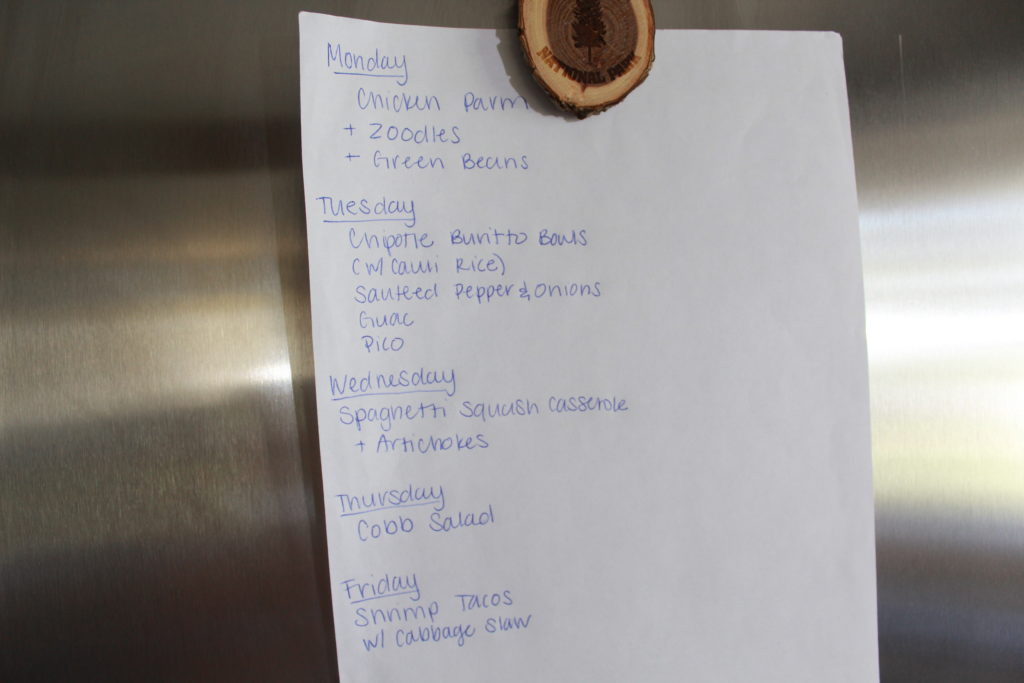 NATIONAL PARK
Monday
Chicken Parm
+ Zoodles
+ Green Beans
Tuesday
Chipotle Burritto Bowls
(w/ Cauli Rice)
Sauteed Pepper & Onions
Guac
Pico
Wednesday
Spaghetti Squash Casserole
+ Artichokes
Thursday
Cobb Salad
Friday
Shrimp Tacos
w/ Cabbage Slaw